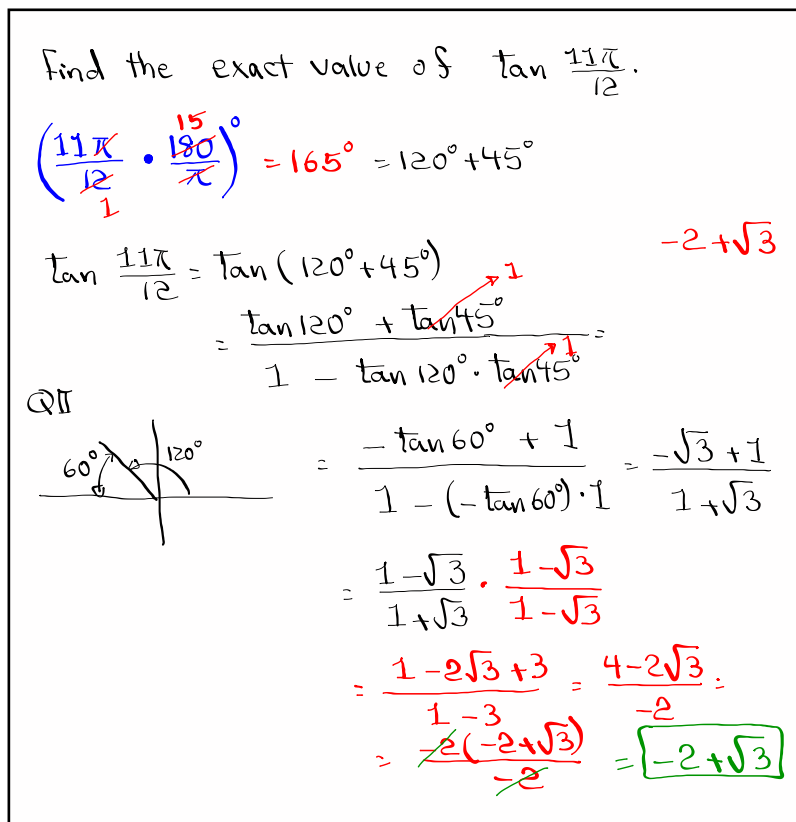 Find the exact value of tan 11π/12.
(11π/12 · 180/π)° = 165° = 120° + 45°
15
1
-2 + √3
tan 11π/12 = tan (120° + 45°)
= (tan 120° + tan 45°)/(1 - tan 120° · tan 45°) =
1
1
QII
60° 120°
= (-tan 60° + 1)/(1 - (-tan 60°) · 1) = (-√3 + 1)/(1 + √3)
= (1 - √3)/(1 + √3) · (1 - √3)/(1 - √3)
= (1 - 2√3 + 3)/(1 - 3) = (4 - 2√3)/(-2) =
= (-2(-2 + √3))/(-2) = -2 + √3